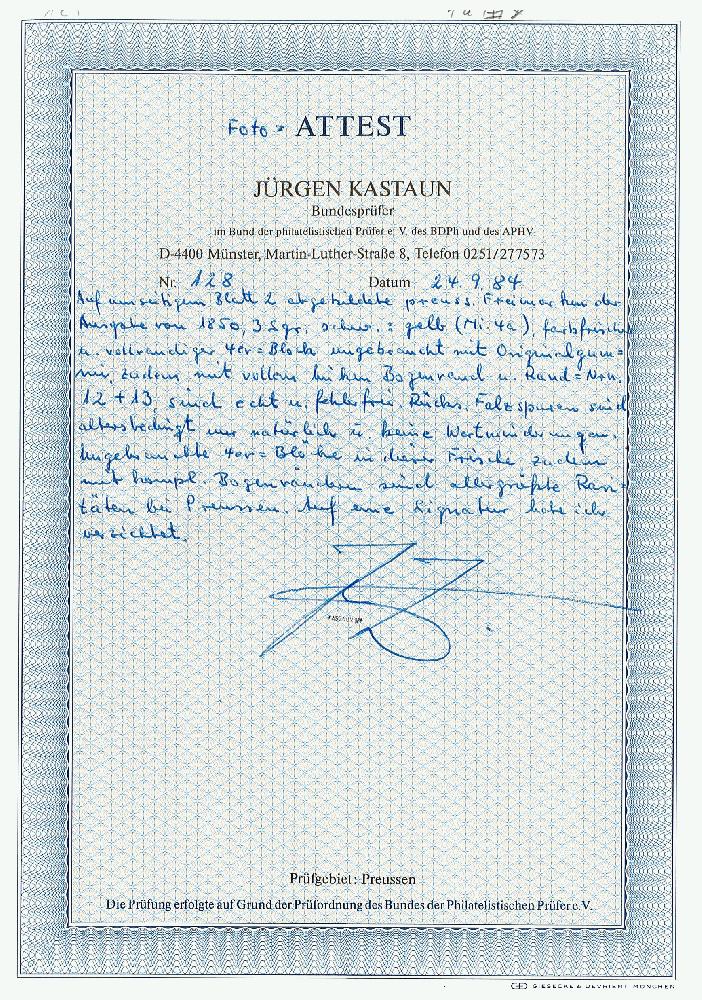 Foto - ATTEST
JÜRGEN KASTAUN
Bundesprüfer
im Bund der philatelistischen Prüfer e. V. des BDPh und des APHV
D-4400 Münster, Martin-Luther-Straße 8, Telefon 0251/277573
Nr. 128 Datum 24.9.84
Auf umseitigem Blatt 2 abgebildete preuss. Freimarken der
Ausgabe von 1850, 3 Sgr. schw. : gelb (Mi. 4a), farbfrischer
u. vollrandiger 4er=Block ungebraucht mit Originalgum=
mi, zudem mit vollem linken Bogenrand u. Rand=Nrn.
12 + 13, sind echt u. fehlerfrei. Rücks. Falzspuren sind
altersbedingt nur natürlich u. keine Wertminderungen.
Ungebrauchte 4er=Blöcke in dieser Frische zudem
mit kompl. Bogenrändern sind allergrößte Rari=
täten bei Preussen. Auf eine Signatur habe ich
verzichtet.
KASTAUN BPP
Prüfgebiet: Preussen
Die Prüfung erfolgte auf Grund der Prüfordnung des Bundes der Philatelistischen Prüfer e. V.
GIESECKE & DEVRIENT MÜNCHEN